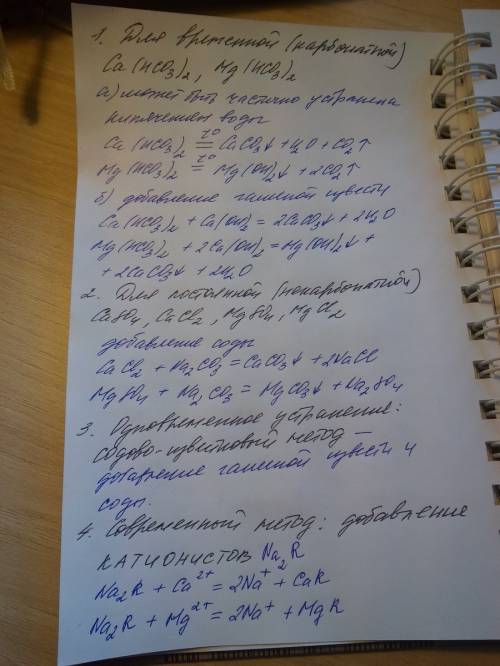 1. Для временной (карбонатной)
Ca(HCO3)2, Mg(HCO3)2
а) может быть частично устранена
кипячением воды
Ca(HCO3)2 t° = CaCO3↓ + H2O + CO2↑
Mg(HCO3)2 t° = Mg(OH)2↓ + 2CO2↑
б) добавление гашеной извести
Ca(HCO3)2 + Ca(OH)2 = 2CaCO3↓ + 2H2O
Mg(HCO3)2 + 2Ca(OH)2 = Mg(OH)2↓ +
+ 2CaCO3↓ + 2H2O
2. Для постоянной (некарбонатной)
CaSO4, CaCl2, MgSO4, MgCl2
добавление соды
CaCl2 + Na2CO3 = CaCO3↓ + 2NaCl
MgSO4 + Na2CO3 = MgCO3↓ + Na2SO4
3. Одновременное устранение:
содово-известковый метод —
добавление гашеной извести и
соды.
4. Современный метод: добавление
катионистов Na2R
Na2R + Ca2+ = 2Na+ + CaR
Na2R + Mg2+ = 2Na+ + MgR